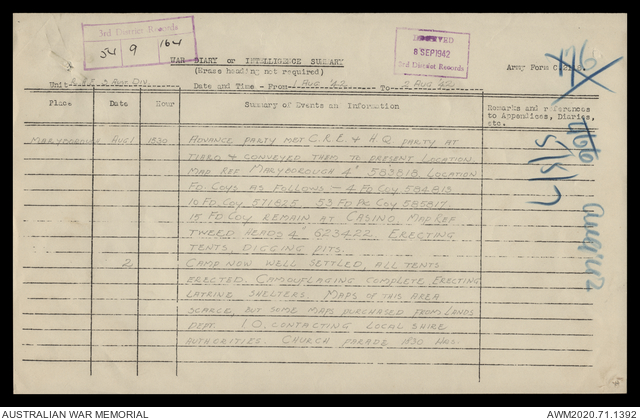 3rd District Records
54 9 164
RECEIVED
8 SEP 1942
3rd District Records
WAR DIARY or INTELLIGENCE SUMMARY
(Erase heading not required)
Army Form C.
Unit 3 Aust Div.
Date and Time - From 1 Aug '42 To Aug 42
Place Date Hour Summary of Events and Information Remarks and references
to Appendices, Diaries,
etc.
MARYBOROUGH AUG 1 1830 ADVANCE PARTY MET C.R.E & H.Q PARTY AT
TIARO & CONVEYED THEM TO PRESENT LOCATION.
MAP REF MARYBOROUGH 4" 583818. LOCATION
FD COYS AS FOLLOWS - 4 FD COY 584813
10 FD. COY 571825. 53 FD PK COY 585817.
15 FD. COY REMAIN AT CASINO. MAP REF
TWEED HEADS 4" 623422. ERECTING
TENTS, DIGGING PITS.
2 CAMP NOW WELL SETTLED, ALL TENTS
ERECTED. CAMOUFLAGING COMPLETE. ERECTING
LATRINE SHELTERS. MAPS OF THIS AREA
SCARCE, BUT SOME MAPS PURCHASED FROM LANDS
DEPT. I.O. CONTACTING LOCAL SHIRE
AUTHORITIES. CHURCH PARADE 1830 HRS.
5/8/7
AUSTRALIAN WAR MEMORIAL
AWM2020.71.1392